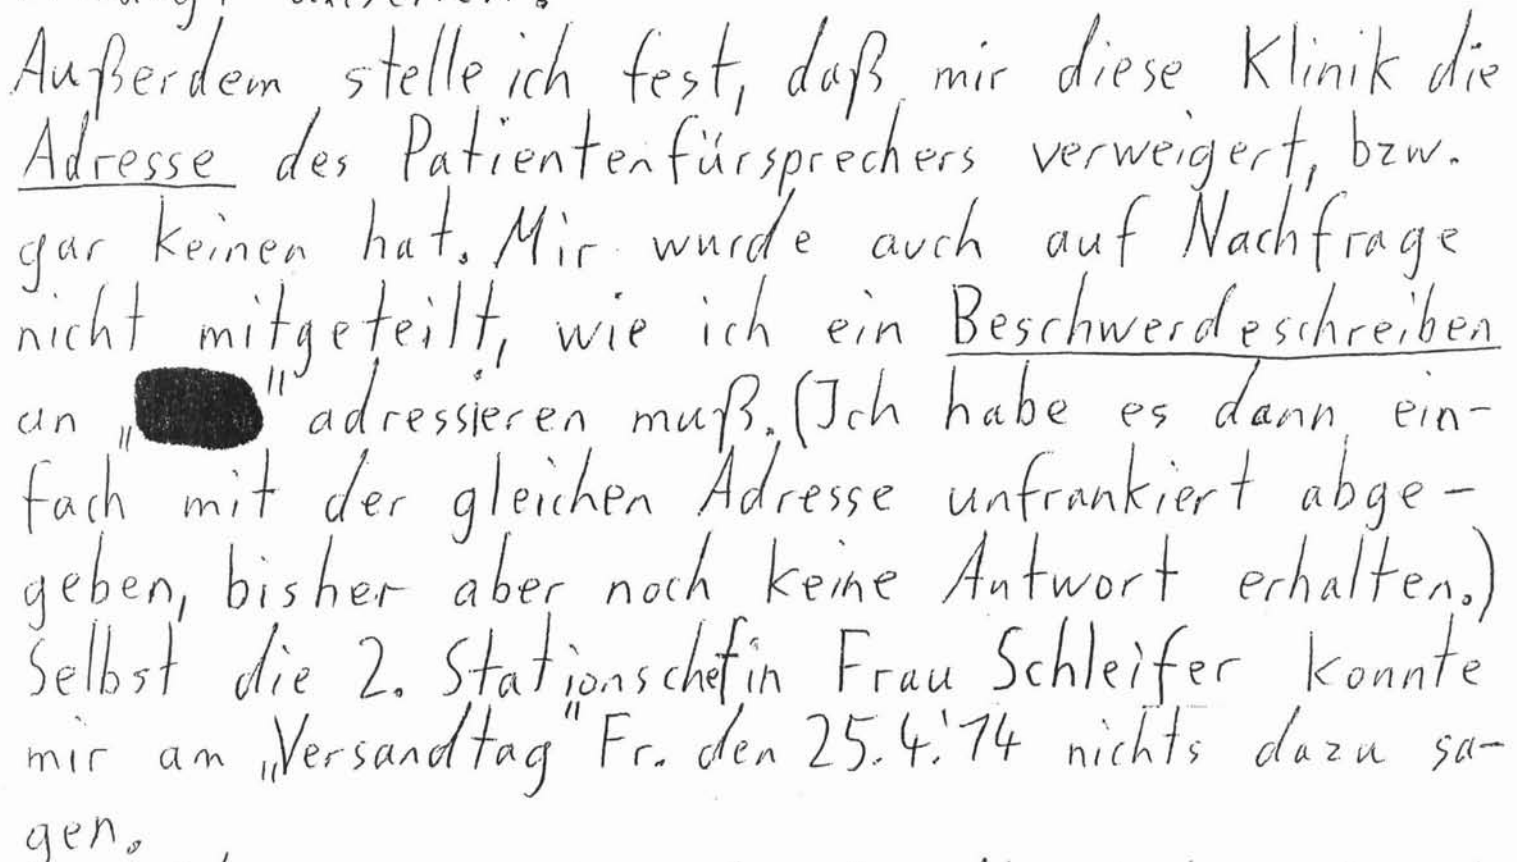 Außerdem stelle ich fest, daß mir diese Klinik die
Adresse des Patientenfürsprechers verweigert, bzw.
gar keinen hat. Mir wurde auch auf Nachfrage
nicht mitgeteilt, wie ich ein Beschwerdeschreiben
an „ " adressieren muß. (Ich habe es dann ein-
fach mit der gleichen Adresse unfrankiert abge-
geben, bisher aber noch keine Antwort erhalten.)
Selbst die 2. Stationschefin Frau Schleifer konnte
mir am „Versandtag" Fr. den 25.4.'14 nichts dazu sa-
gen.